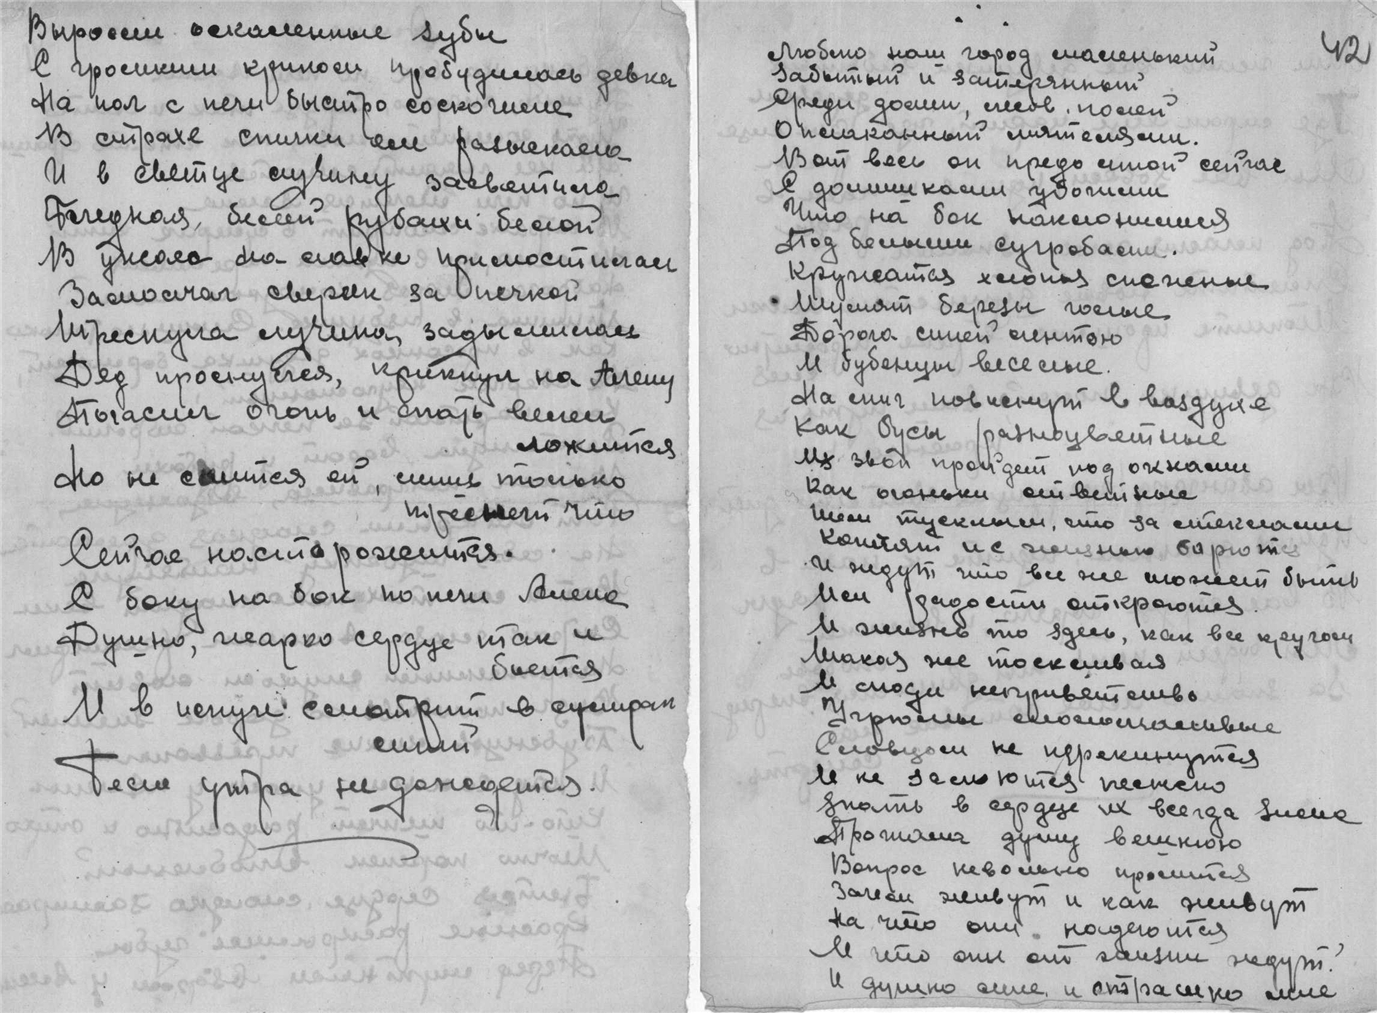 Выросли оскаленные зубы
С громким криком пробудилась девка
На пол с печи быстро соскочила
В страхе спички еле разыскала
И в светце лучину засветила
Бледная, белей рубахи белой
В ужасе на лавке примостилась
Замолчал сверчек за печкой
Треснула лучина, задымилась
Дед проснулся, крикнул на Алену
Погасил огонь и спать велел
ложится
Но не спится ей, лишь только
треснет что
Сейчас насторожится.
С боку на бок на печи Алена
Душно, жарко сердце так и
бьется
И в испуге смотрит в сумрак
синий
Бела утра не дождется.
42
Люблю наш город маленький
Забытый и затерянный
Среди долин, лесов, полей
Оплаканный мятелями.
Вот весь он предо мной сейчас
С домиками убогими
Что на бок наклонился
Под белыми сугробами.
Кружатся хлопья снежные
Шумят березы голые
Дорога синей лентою
И бубенцы веселые.
На миг повиснут в воздухе
Как бусы разноцветные
Их звон пройдет под окнами
Как огоньки ответные
Тем тусклым, что за стеклами
Коптят и с жизнью борются
И ждут что все же может быть
Им радости откроются.
И жизнь то здесь, как все кругом
Такая же тоскливая
И люди неприветливо
Угрюмы молчаливые
Словцом не перекинутся
И не засмеются нежно
Знать в сердце их всегда зима
Прожгла душу великую
Вопрос невольно просится
Зачем живут и как живут
На что они надеются
И что они от жизни ждут?
И душно мне и страшно мне